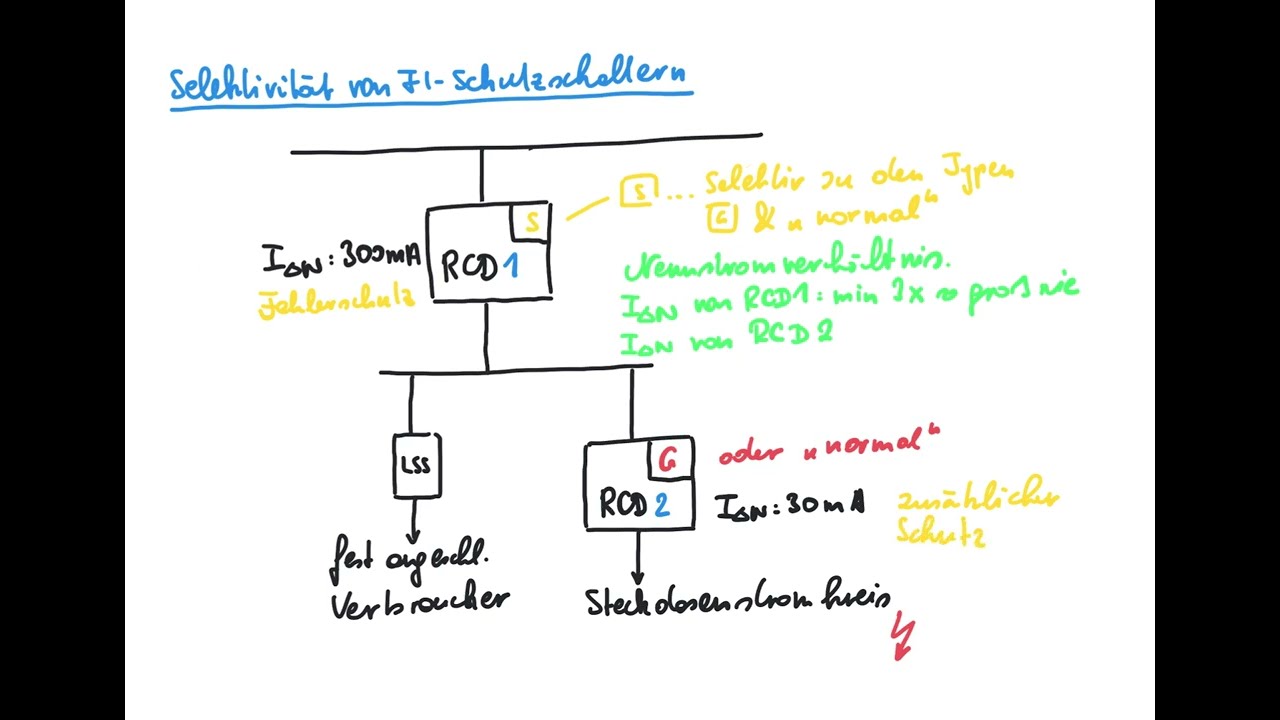 Selektivität von FI-Schutzschaltern
S ... Selektiv zu den Typen
G & "normal"
S
RCD 1
IΔN: 300mA
Fehlerschutz
Nennstromverhältnis.
IΔN von RCD1: min 3x so groß wie
IΔN von RCD 2
LSS
G
RCD 2
oder "normal"
IΔN: 30mA
zusätzlicher
Schutz
fest angeschl.
Verbraucher
Steckdosenstromkreis